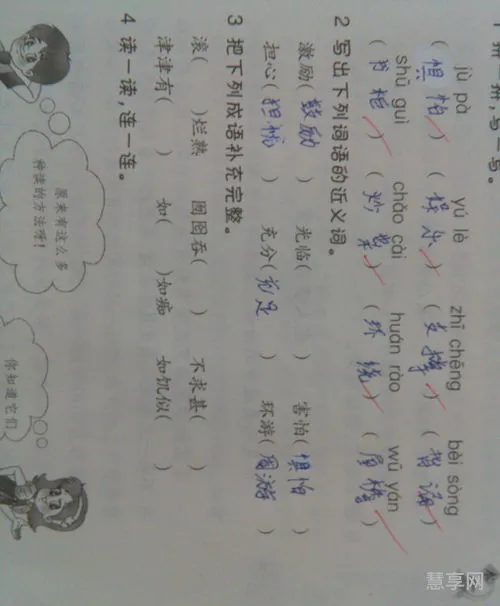 拼一拼,写一写。
jù pà yú lè zhī chēng bèi sòng
(惧怕) (娱乐) (支撑) (背诵)
shū guì chǎo cài huán rào wū yán
(书柜) (炒菜) (环绕) (屋檐)
2 写出下列词语的近义词。
激励(鼓励) 光临( ) 害怕(惧怕)
担心(担忧) 充分(充足) 环游(周游)
3 把下列成语补充完整。
滚( )烂熟 囫囵吞( ) 不求甚( )
津津有( ) 如( )如痴 如饥似( )
4 读一读,连一连。
原来有这么多
种读的方法呀!
你知道它们
慧享网